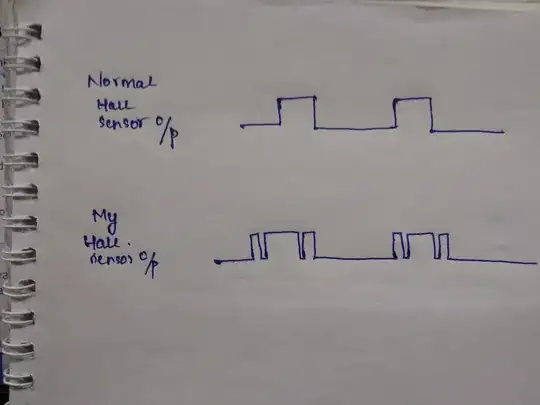 Normal
Hall
sensor o/p
My
Hall.
sensor o/p